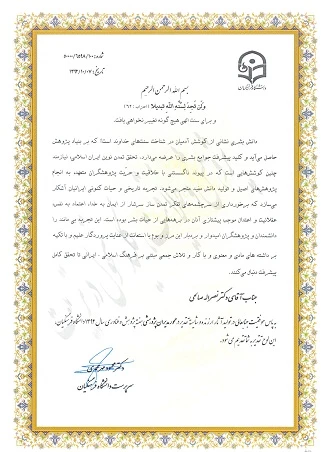 شماره: ۵۰۰۰۰/۶۵۹۸/۱۰۰
تاریخ: ۱۳۹۳/۱۰/۰۷
دانشگاه فرهنگیان
بسم الله الرحمن الرحیم
وَلَن تَجِدَ لِسُنَّةِ اللَّهِ تَبدیلاً (احزاب: ۶۲)
و برای سنت الهی هیچ گونه تغییر نخواهی یافت.
دانش بشری نشانی از کوشش آدمیان در شناخت سنت‌های خداوند است؛ که بر بنیاد پژوهش
حاصل می‌آید و کلید پیشرفت جوامع بشری را عرضه می‌دارد. تحقق تمدن نوین ایران اسلامی، نیازمند
چنین کوشش‌هایی است که در پیوند ناگسستنی با خلاقیت و حریت پژوهشگران متعهد، به انجام
پژوهش‌های اصیل و تولید دانش مفید منجر می‌شود. تجربه تاریخی و حیات کنونی ایرانیان آشکار
می‌سازد که برخورداری از سرچشمه‌های تفکر تمدن ساز سرشار از ایمان به خدا، اعتماد به نفس،
عقلانیت و اعتدال موجب پیشتازی آنان در برهه‌هایی از حیات بشر بوده است. این تجربه بی مانند، را
دانشمندان و پژوهشگران امیدوار و بردبار این مرز و بوم با استعانت از عنایت پروردگار علیم و با تکیه
بر داشته های مادی و معنوی و با کار و تلاش جمعی مبتنی بر فرهنگ اسلامی - ایرانی تا تحقق کامل
پیشرفت دنبال می‌کنند.
جناب آقای دکتر نصراله صالحی
به پاس موفقیت جنابعالی در تولید آثار ارزنده و شایسته تقدیر در محور مدیران پژوهشی هفته پژوهش و فناوری سال ۱۳۹۳ دانشگاه فرهنگیان،
این لوح تقدیر به شما تقدیم می شود.
دکتر محمود مهرمحمدی
سرپرست دانشگاه فرهنگیان